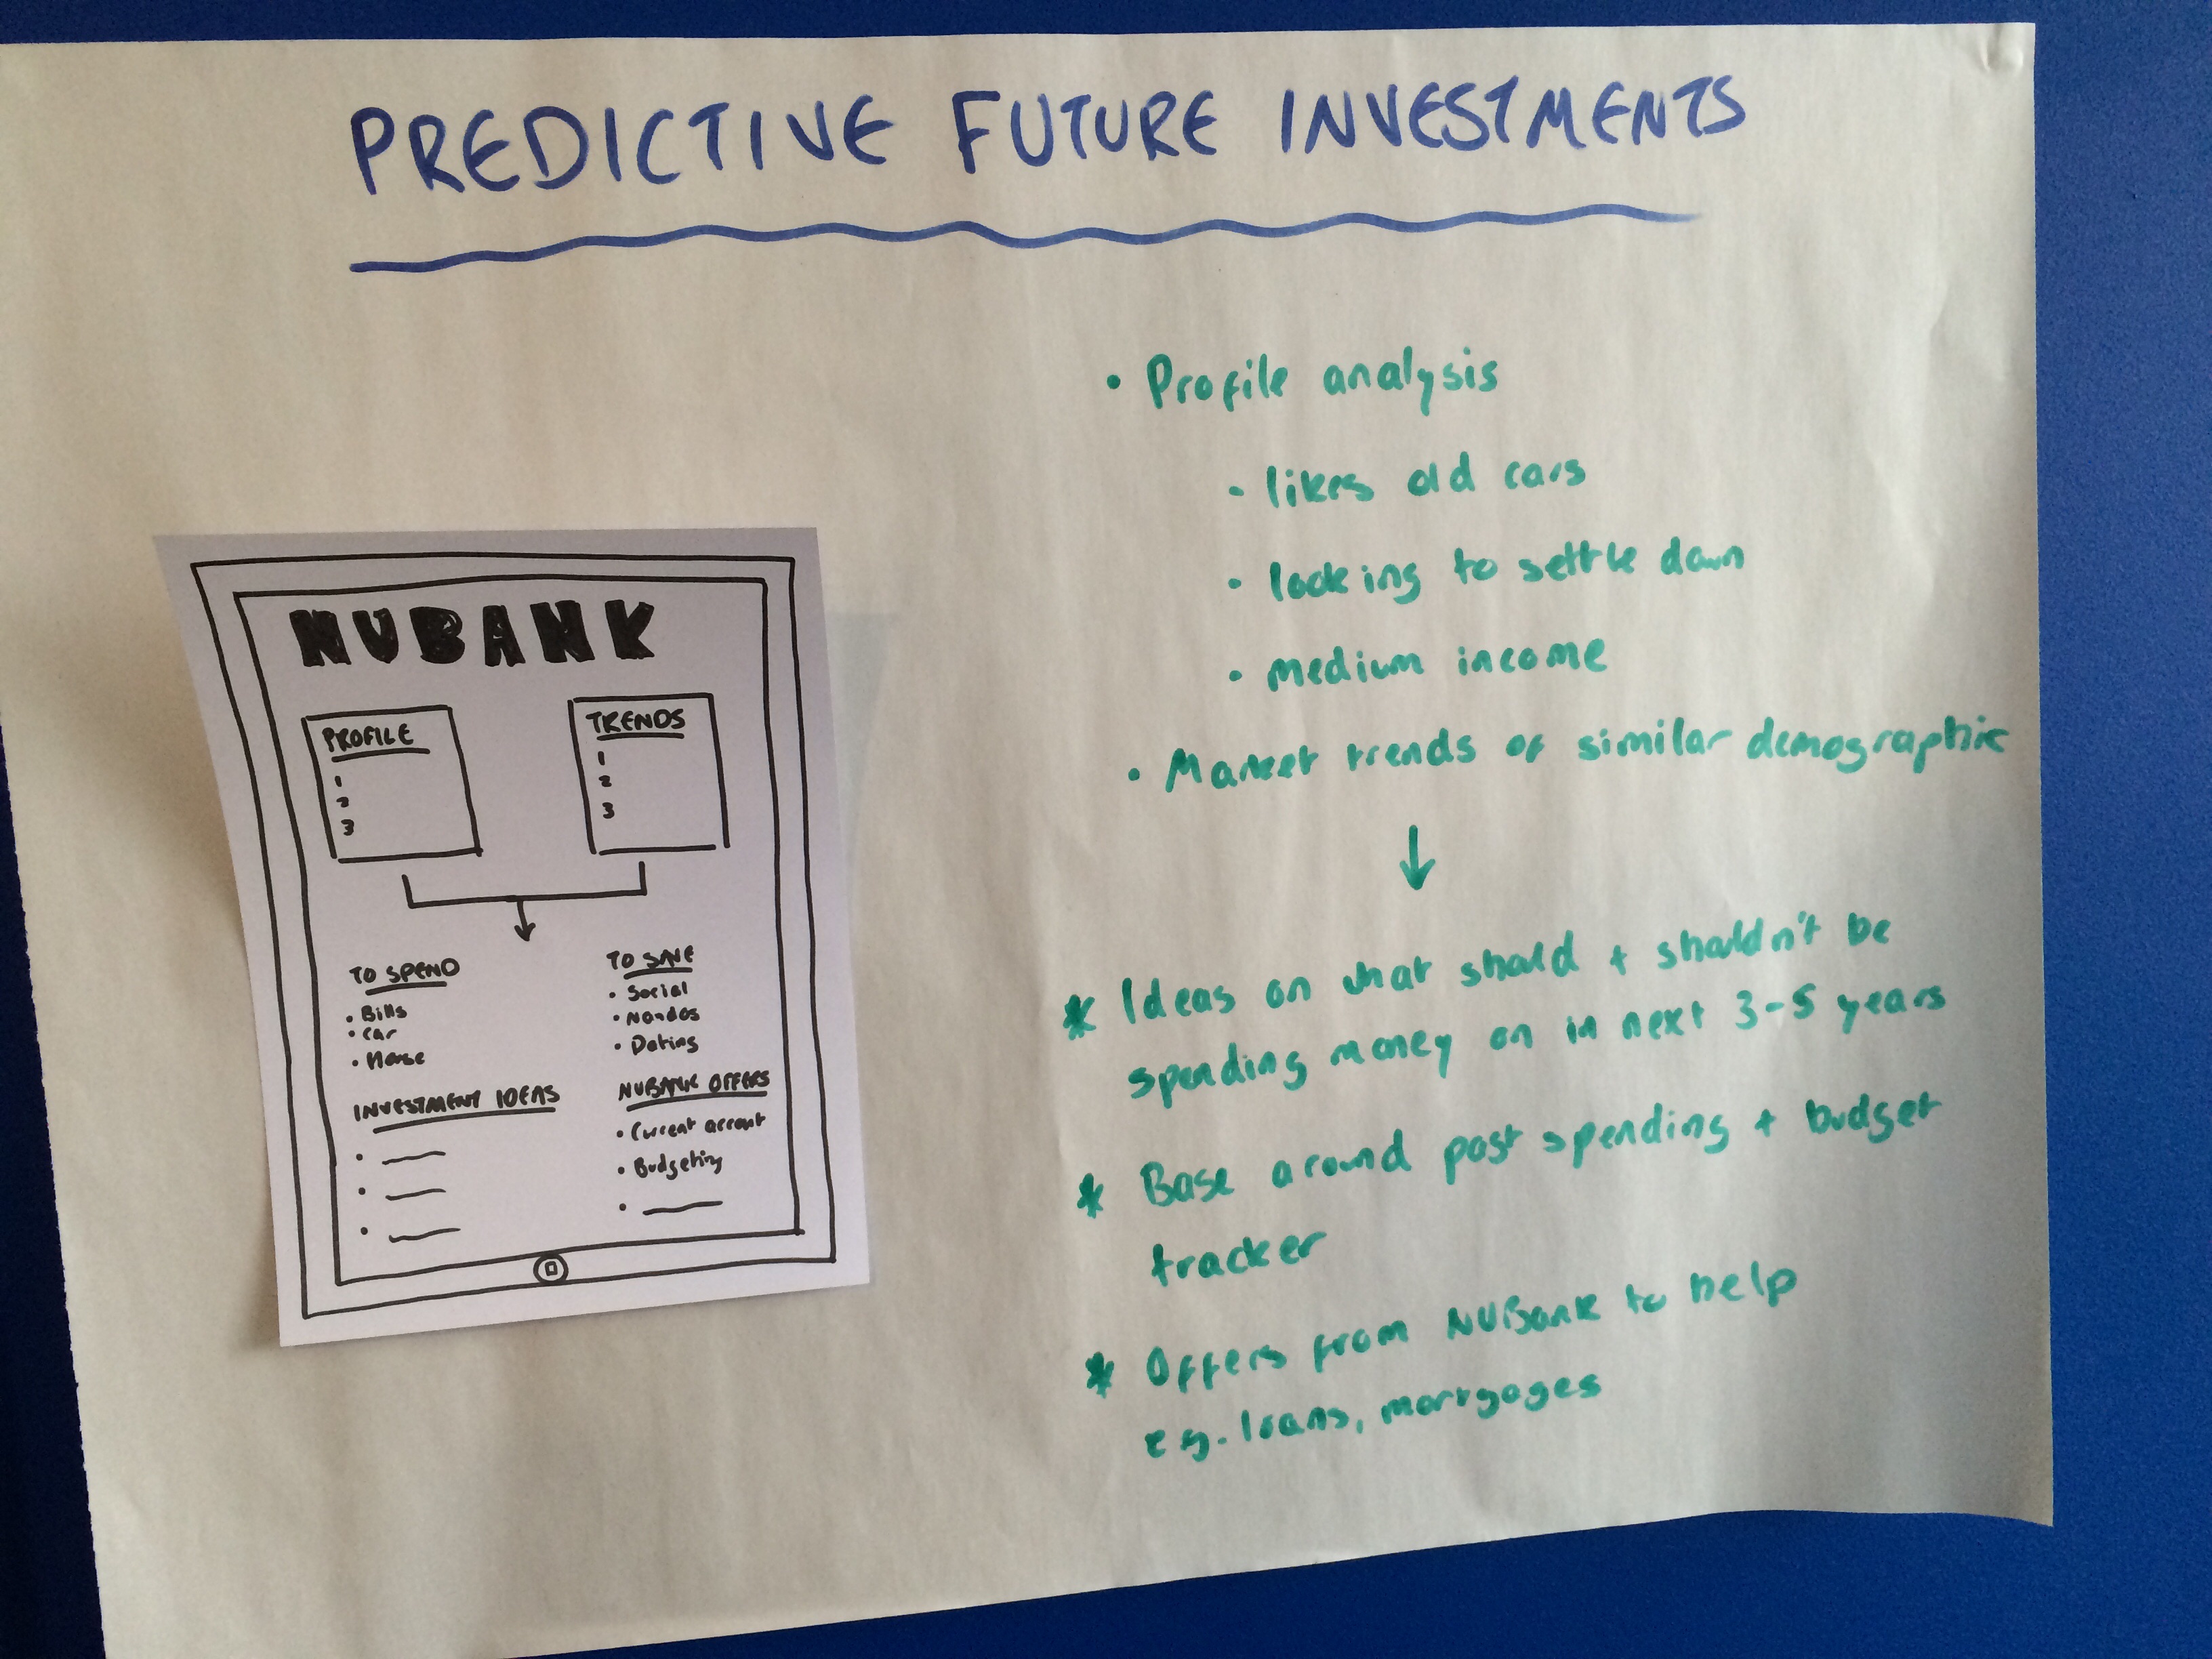 PREDICTIVE FUTURE INVESTMENTS
NUBANK
PROFILE
1
2
3
TRENDS
1
2
3
TO SPEND
• Bills
• Car
• House
TO SAVE
• Social
• Nandos
• Dating
INVESTMENT IDEAS
NUBANK OFFERS
• Current account
• Budgeting
• Profile analysis
• likes old cars
• looking to settle down
• medium income
• Market trends of similar demographic
↓
* Ideas on what should + shouldn't be
spending money on in next 3-5 years
* Base around past spending + budget
tracker
* Offers from NUBank to help
eg. loans, mortgages